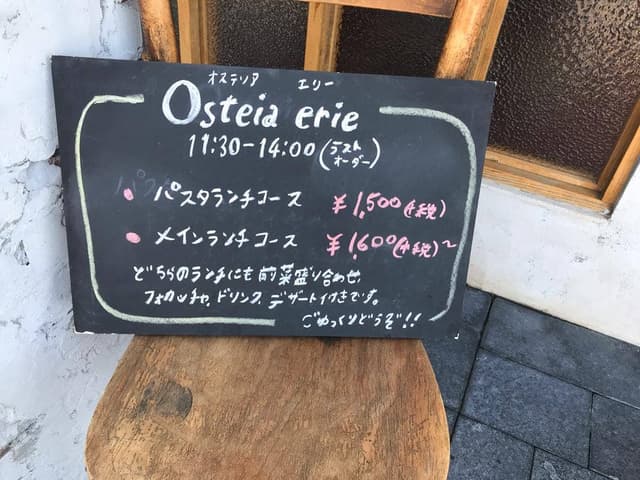 オステリア エリー
Osteia erie
11:30-14:00(ラストオーダー)
・パスタランチコース ¥1,500(+税)
・メインランチコース ¥1,600(+税)~
どちらのランチにも前菜盛り合わせ,
フォカッチャ,ドリンク,デザート付きです。
ごゆっくりどうぞ!!